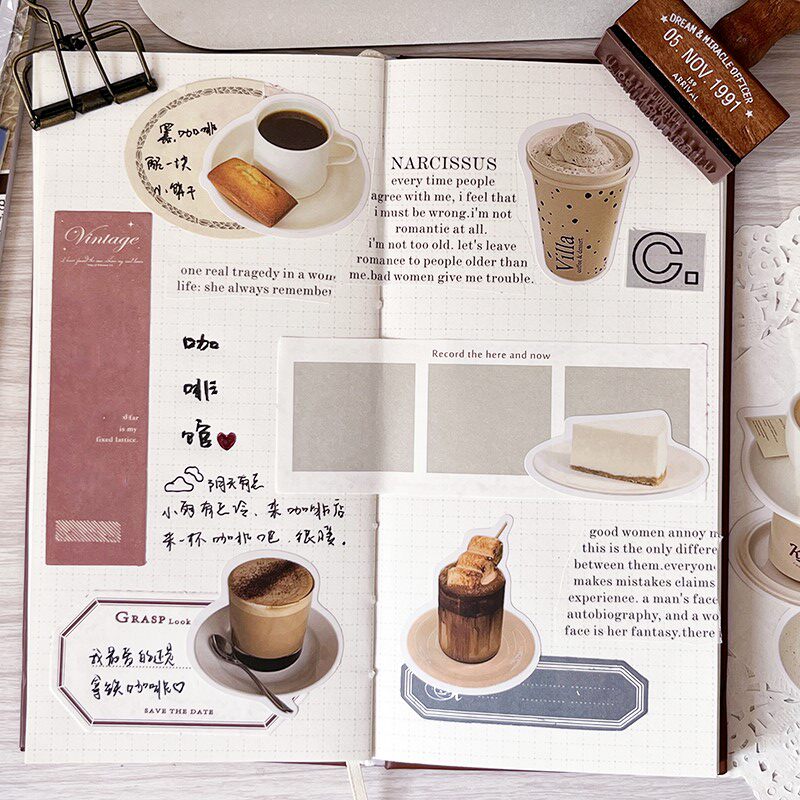 黑咖啡
配一块
小饼干
Vintage
d/far
is my
fixed lattice.
one real tragedy in a wom
life: she always remember
咖
啡
馆
阴天有点
小雨有点冷,来咖啡店
来一杯咖啡吧,很暖。
GRASP Look
我最爱的还是
拿铁咖啡
SAVE THE DATE
NARCISSUS
every time people
agree with me, i feel that
i must be wrong.i'm not
romantie at all.
i'm not too old. let's leave
romance to people older than
me.bad women give me trouble.
Villa
C.
Record the here and now
good women annoy m
this is the only differe
between them.everyone
makes mistakes claims
experience. a man's face
autobiography, and a wo
face is her fantasy.there
DREAM & MIRACLE OFFICER
05 NOV 1991
ARRIVAL